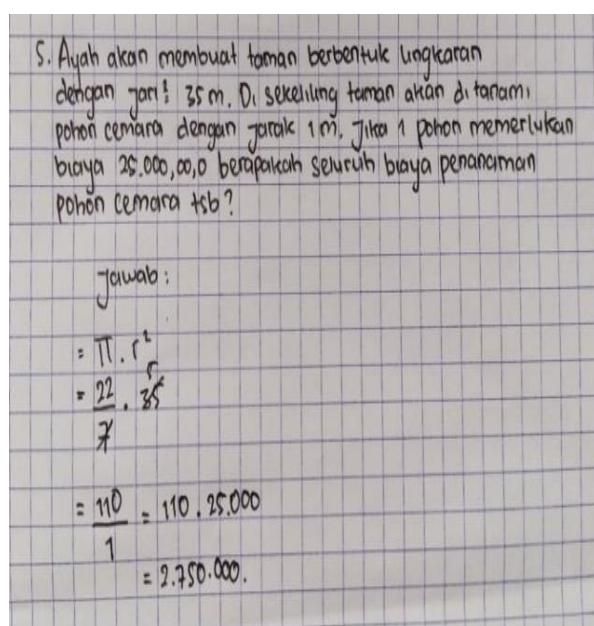 5. Ayah akan membuat taman berbentuk lingkaran
dengan jari² 35 m. Di sekeliling taman akan di tanami
pohon cemara dengan jarak 1 m. Jika 1 pohon memerlukan
biaya 25.000,00,0 berapakah seluruh biaya penanaman
pohon cemara tsb?
Jawab:
= π . r²
= 22/7 . 35 5
= 110/1 = 110 . 25.000
= 2.750.000.